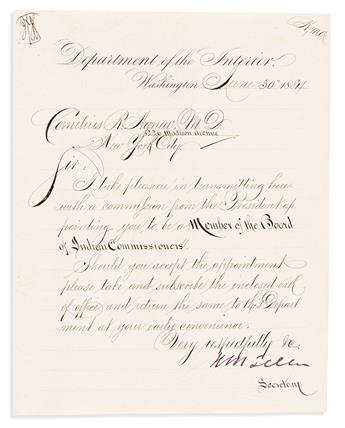 Department of the Interior.
Washington June 30th 1884.
Cornelius R. Agnew, M.D.
Madison Avenue
New York City.
Sir:
I take pleasure in transmitting here
with a commission from the President ap
pointing you to be a Member of the Board
of Indian Commissioners.
Should you accept the appointment
please take and subscribe the enclosed oath
of office and return the same to this Depart
ment at your early convenience.
Very respectfully &c.
H M Teller
Secretary